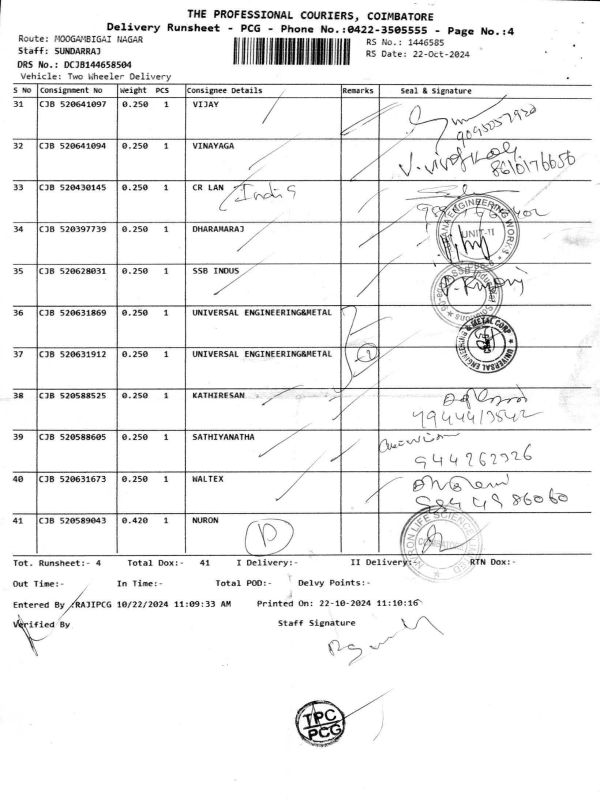 THE PROFESSIONAL COURIERS, COIMBATORE
Delivery Runsheet - PCG - Phone No.:0422-3505555 - Page No.:4
Route: MOOGAMBIGAI NAGAR RS No.: 1446585
Staff: SUNDARRAJ RS Date: 22-Oct-2024
DRS No.: DCJB144658504
Vehicle: Two Wheeler Delivery
S No Consignment No Weight PCS Consignee Details Remarks Seal & Signature
31 CJB 520641097 0.250 1 VIJAY
9095057920
32 CJB 520641094 0.250 1 VINAYAGA
8610176656
33 CJB 520430145 0.250 1 CR LAN India
34 CJB 520397739 0.250 1 DHARAMARAJ
ENGINEERING WORKS UNIT-II
35 CJB 520628031 0.250 1 SSB INDUS
36 CJB 520631869 0.250 1 UNIVERSAL ENGINEERING&METAL
UNIVERSAL ENGINEERING & METAL CORP
37 CJB 520631912 0.250 1 UNIVERSAL ENGINEERING&METAL 2
38 CJB 520588525 0.250 1 KATHIRESAN
7944413542
39 CJB 520588605 0.250 1 SATHIYANATHA
944262326
40 CJB 520631673 0.250 1 WALTEX
984 49 86060
41 CJB 520589043 0.420 1 NURON D
LIFE SCIENCE COIMBATORE
Tot. Runsheet:- 4 Total Dox:- 41 I Delivery:- II Delivery:- RTN Dox:-
Out Time:- In Time:- Total POD:- Delvy Points:-
Entered By :RAJIPCG 10/22/2024 11:09:33 AM Printed On: 22-10-2024 11:10:16
Verified By Staff Signature
TPC
PCG